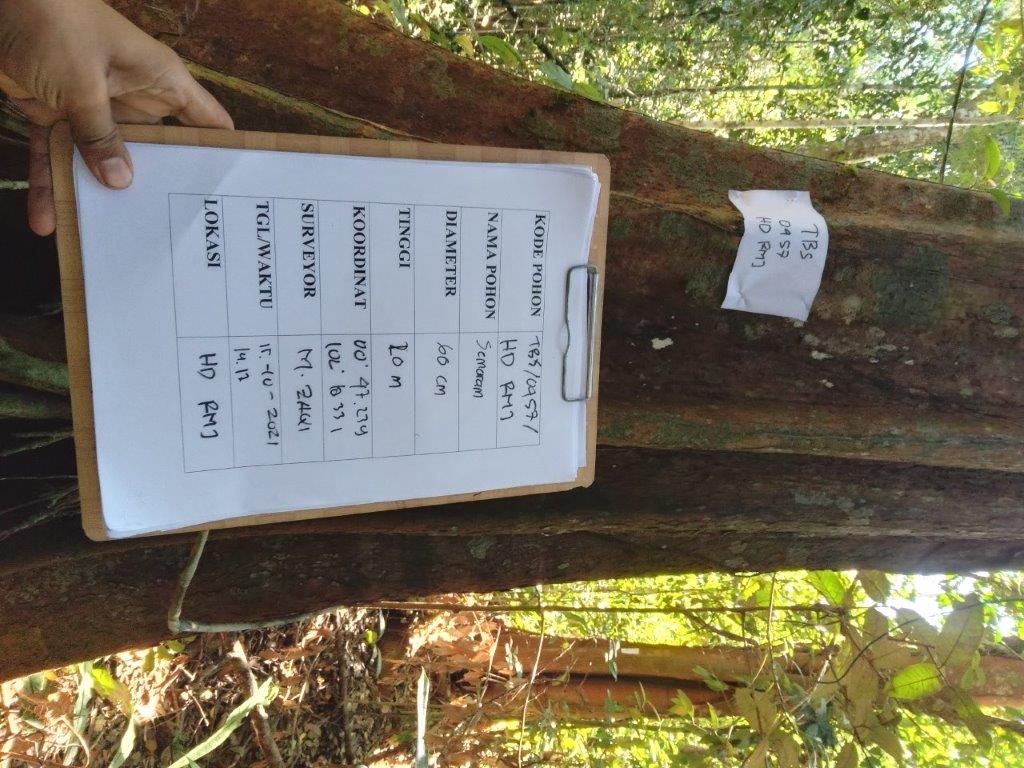 TBS
0957
HD RMJ
KODE POHON TBS/0957/
HD RMJ
NAMA POHON Semaram
DIAMETER 60 cm
TINGGI 20 m
KOORDINAT 00° 47.279
102°
SURVEYOR M. ZAQI
TGL/WAKTU 15-10-2021
LOKASI HD RMJ